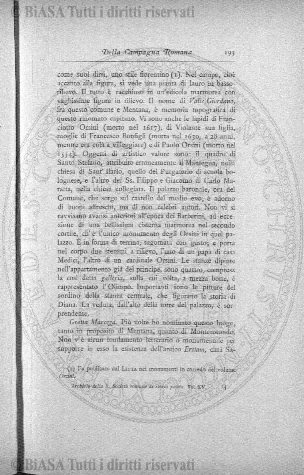 © BIASA Tutti i diritti riservati
Della Campagna Romana 193
come suol dirsi, uno stile fiorentino (1). Nel campo, cioè
accanto alla figura, si vede una pianta di lauro in basso
rilievo. Il tutto è racchiuso in un'edicola marmorea con
vaghissime figure in rilievo. Il nome di Valle Giordana,
fra questo comune e Mentana, è memoria topografica di
questo rinomato capitano. Vi sono anche le lapidi di Fran-
ciotto Orsini (morto nel 1617), di Violante sua figlia,
moglie di Francesco Bonfigli (morta nel 1630, a 28 anni,
mentre era colà a villeggiare) e di Paolo Orsini (morto nel
Oggetti di artistico valore sono: il quadro di
Santo Stefano, attribuito erroneamente a Masaccio, nella
chiesa di Sant' Ilario, quello del Purgatorio di scuola bo-
lognese, e l'altro del SS. Filippo e Giacomo di Carlo Ma-
ratta, nella chiesa collegiata. Il palazzo baronale, era del
Comune, che sorge sul castello del medio evo, è adorno
di buoni affreschi, ma di non celebri autori. Non vi si
ravvisano avanzi anteriori all'epoca dei Barberini, ad ecce-
zione di una bellissima cisterna marmorea nel secondo
cortile, ch'è l'unico monumento degli Orsini in quel pa-
lazzo. È in forma di terrina, sagomata con gusto, e porta
nel corpo due stemmi a rilievo, l'uno di un papa di casa
Medici, l'altro di un cardinale Orsini. Le stanze dipinte
nell'appartamento già del principe, sono quattro, comprese
la così detta galleria, nella cui volta, a mezza botte, è
rappresentato l'Olimpo. Importanti sono le pitture del
sordino della stanza centrale, che figurano le storie di
Diana. La veduta, dall'alto della torre del palazzo, è sor-
prendente.
Grotta Marozza. Più volte ho nominato questo luogo,
tanto in proposito di Mentana, quanto di Monterotondo.
Non v'è alcun fondamento letterario o monumentale per
supporre in esso la esistenza dell'antico Eretum, città Sa-
(1) Fu pubblicato dal Litta nei monumenti in corredo del volume
Orsini.
Archivio della R. Società romana di storia patria. Vol. XV. 13
© BIASA Tutti i diritti riservati